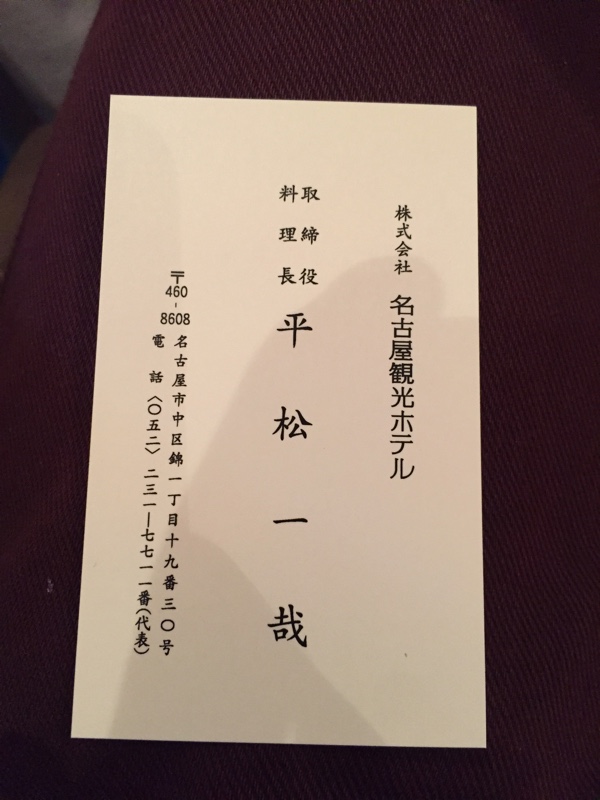 株式会社 名古屋観光ホテル
取締役
料理長
平松一哉
〒460-8608 名古屋市中区錦一丁目十九番三〇号
電話〈〇五二〉二三一―七七一一番(代表)